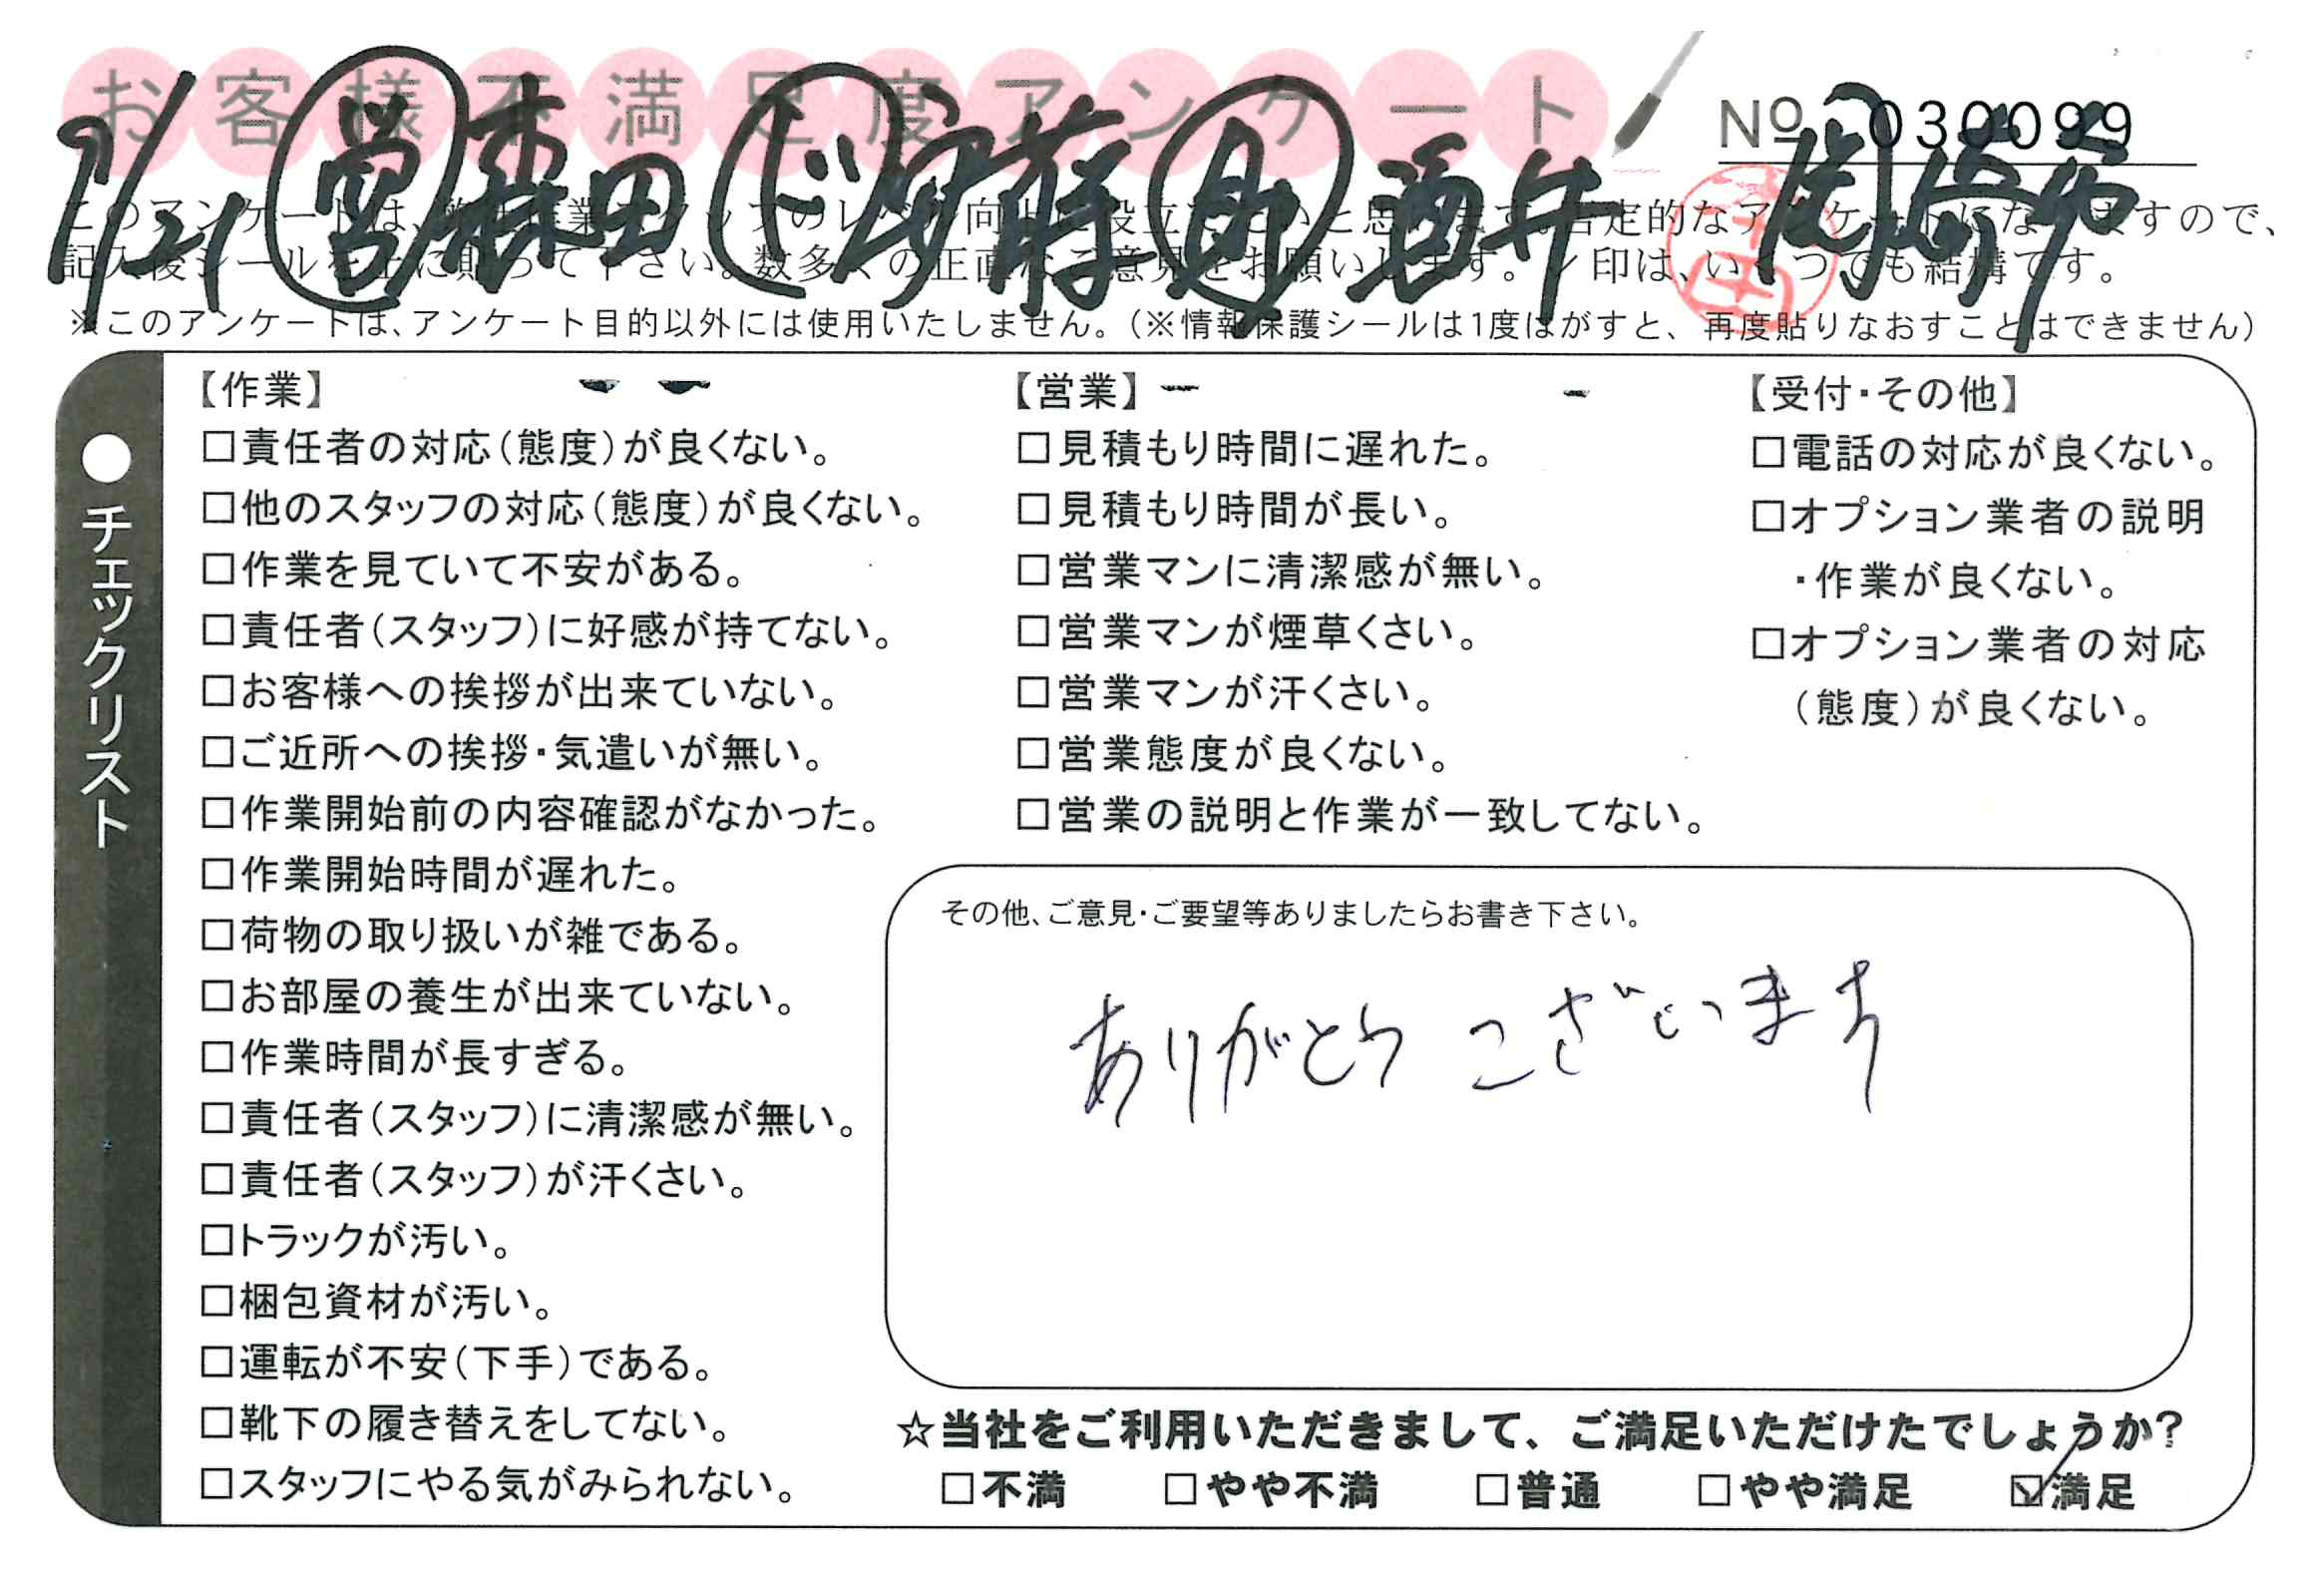 お客様不満足度アンケート
№ 030099
9/21 営 森田 ド 伊藤 助 酒井 尚弥
このアンケートは、弊社作業スタッフのレベル向上に役立てたいと思います。否定的なアンケートになりますので、
記入後シールを上に貼って下さい。数多くの正直なご意見をお願いします。レ印は、いくつでも結構です。
※このアンケートは、アンケート目的以外には使用いたしません。(※情報保護シールは1度はがすと、再度貼りなおすことはできません)
●チェックリスト
【作業】
□責任者の対応(態度)が良くない。
□他のスタッフの対応(態度)が良くない。
□作業を見ていて不安がある。
□責任者(スタッフ)に好感が持てない。
□お客様への挨拶が出来ていない。
□ご近所への挨拶・気遣いが無い。
□作業開始前の内容確認がなかった。
□作業開始時間が遅れた。
□荷物の取り扱いが雑である。
□お部屋の養生が出来ていない。
□作業時間が長すぎる。
□責任者(スタッフ)に清潔感が無い。
□責任者(スタッフ)が汗くさい。
□トラックが汚い。
□梱包資材が汚い。
□運転が不安(下手)である。
□靴下の履き替えをしてない。
□スタッフにやる気がみられない。
【営業】
□見積もり時間に遅れた。
□見積もり時間が長い。
□営業マンに清潔感が無い。
□営業マンが煙草くさい。
□営業マンが汗くさい。
□営業態度が良くない。
□営業の説明と作業が一致してない。
【受付・その他】
□電話の対応が良くない。
□オプション業者の説明
・作業が良くない。
□オプション業者の対応
(態度)が良くない。
その他、ご意見・ご要望等ありましたらお書き下さい。
ありがとうございます
☆当社をご利用いただきまして、ご満足いただけたでしょうか?
□不満 □やや不満 □普通 □やや満足 ☑満足